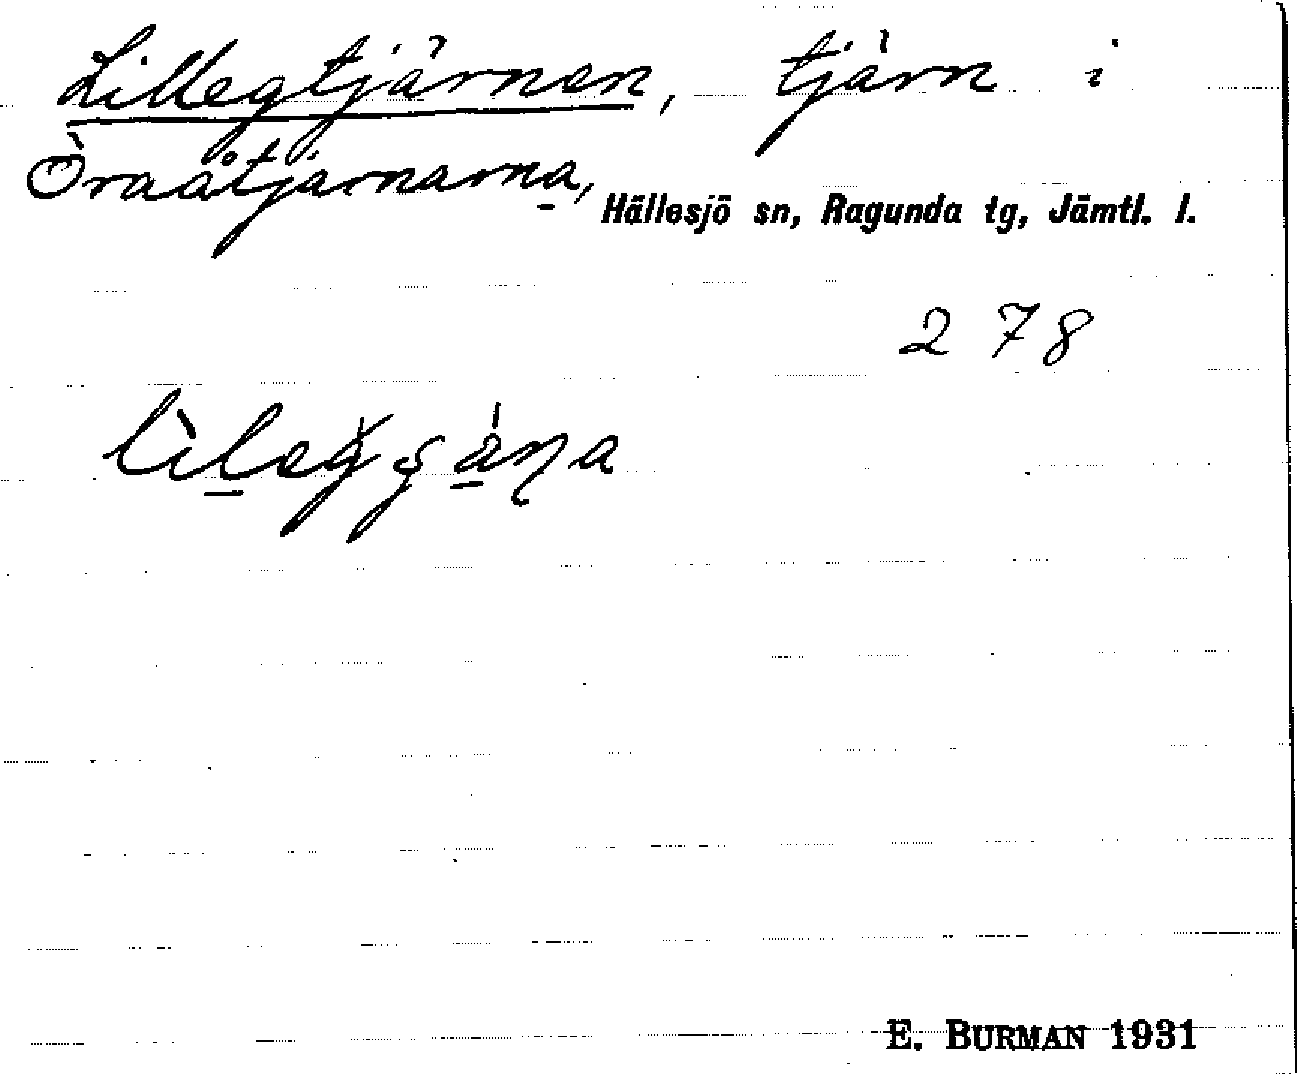 Lillegtjärnen, tjärn i
Öraåtjärnarna,
Hällesjö sn, Ragunda tg, Jämtl. l.
278
E. BURMAN 1931